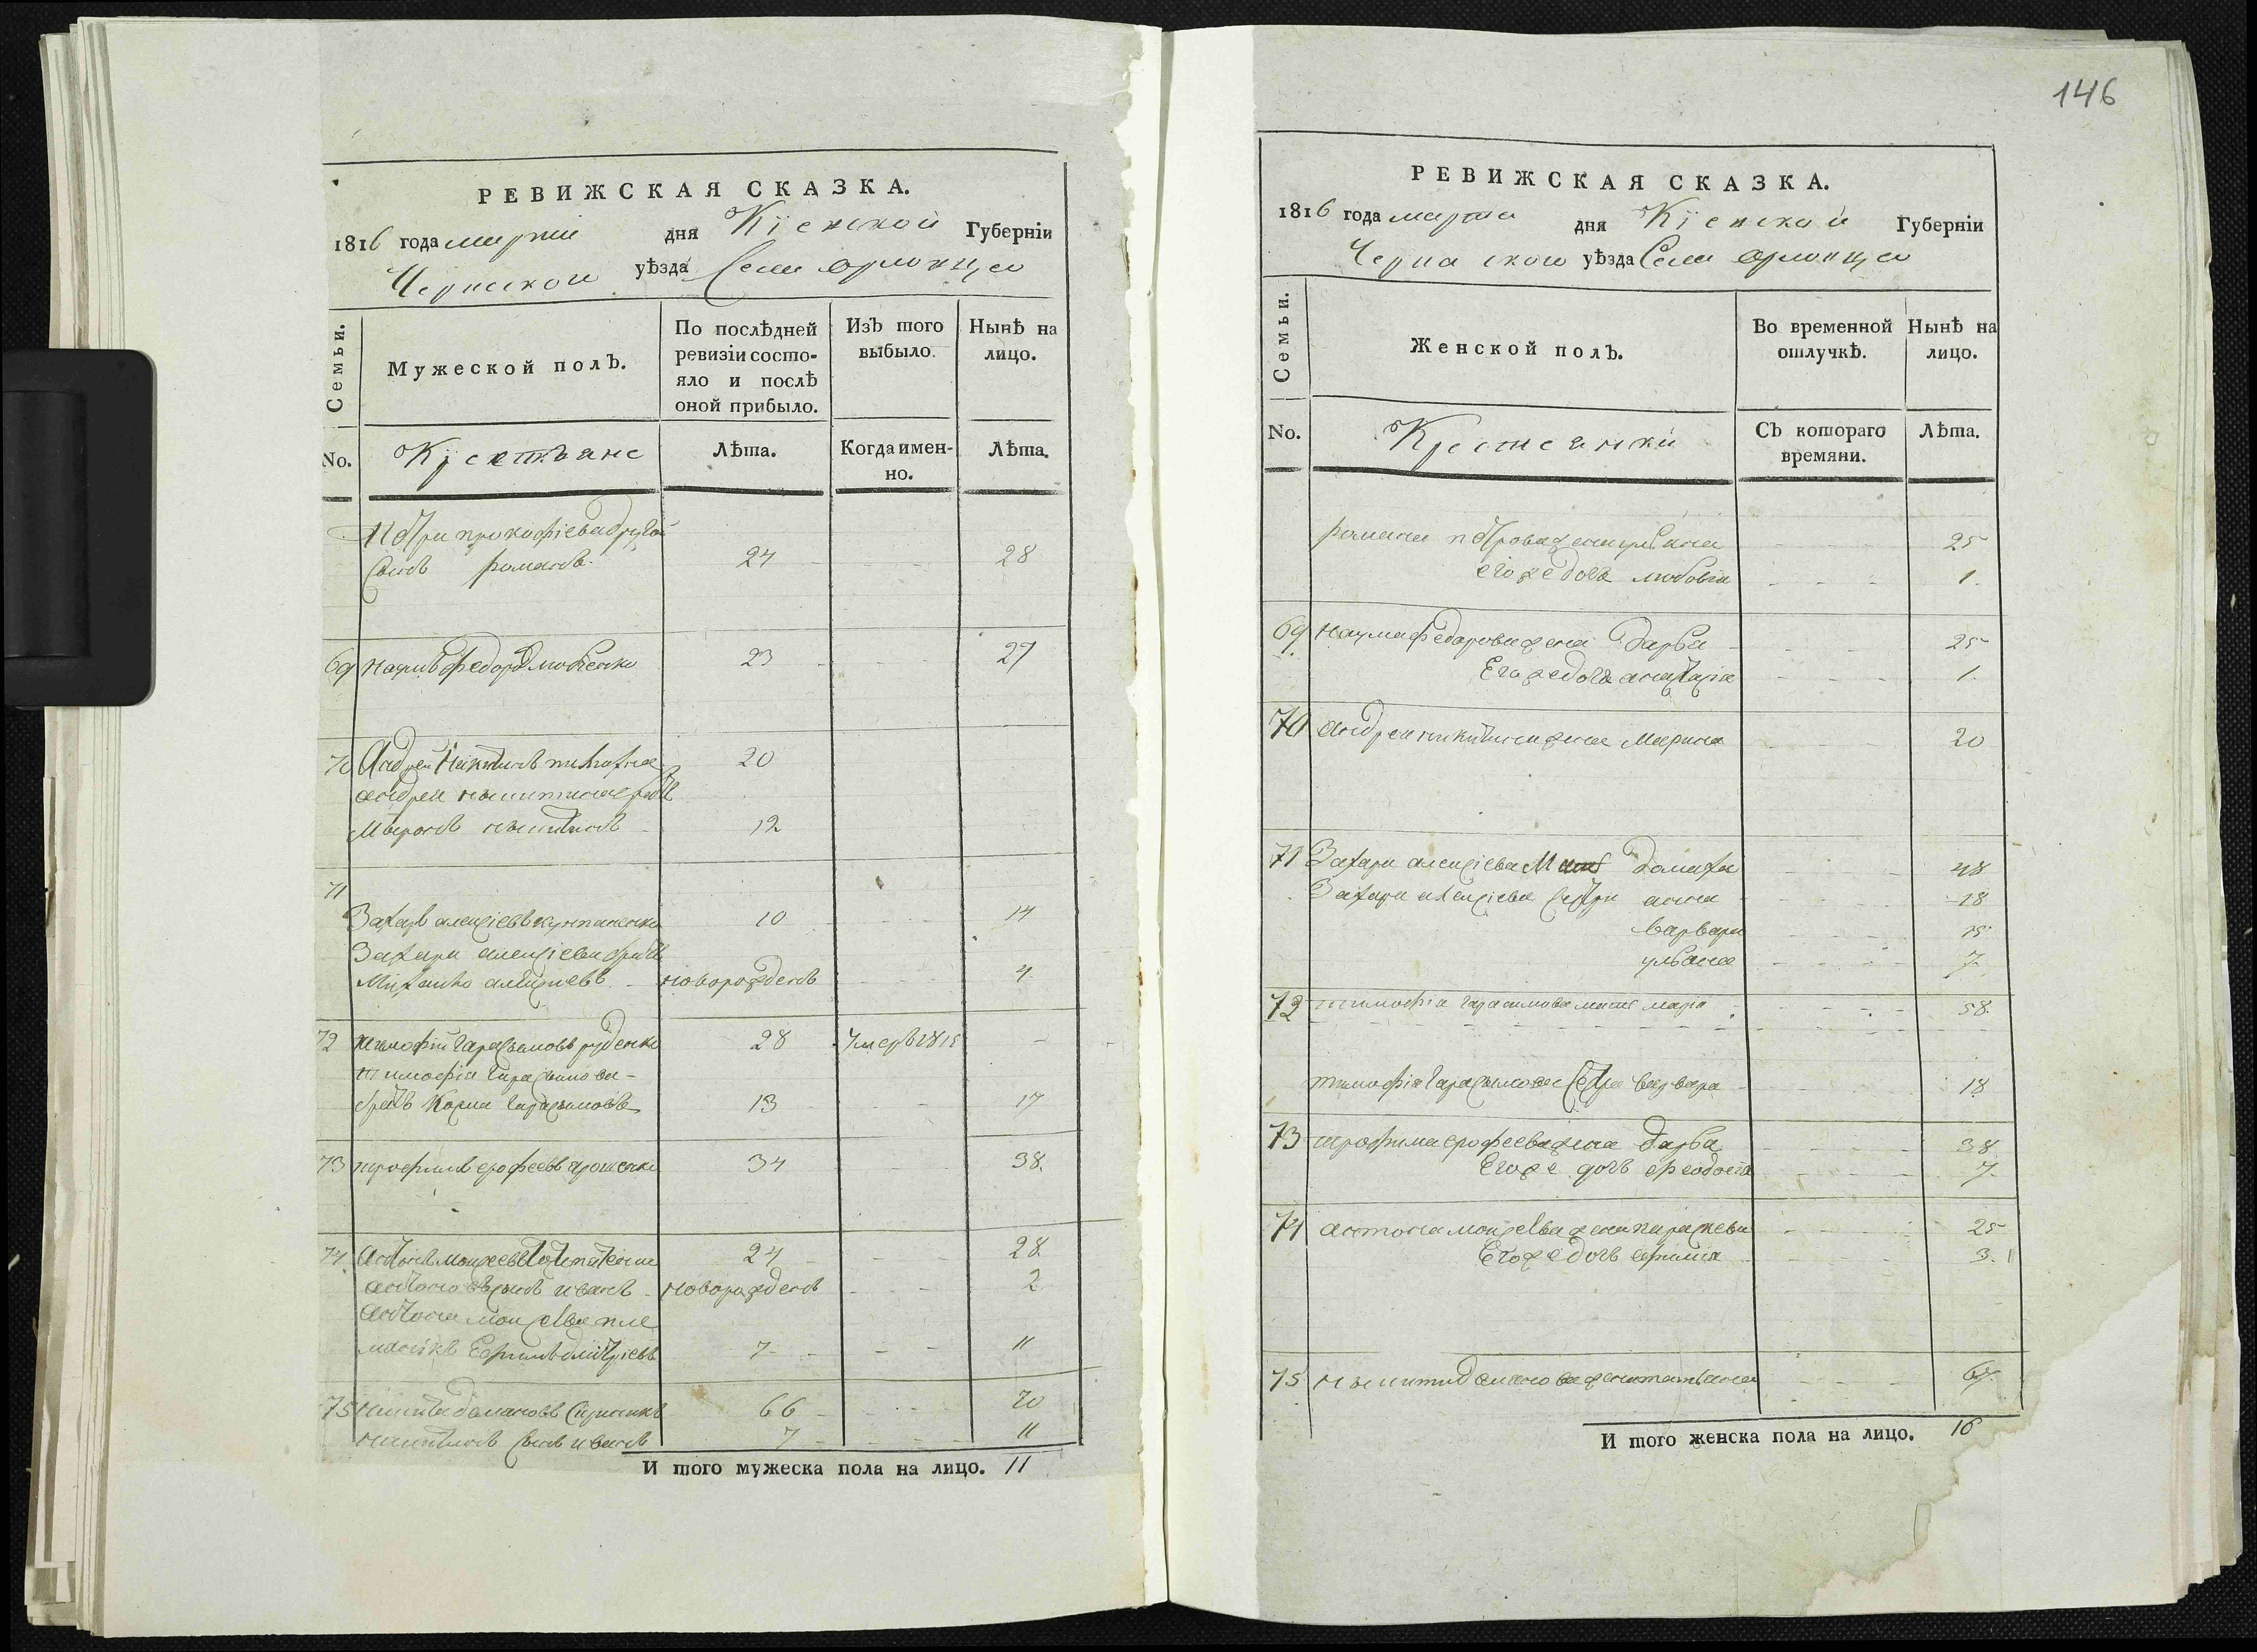 РЕВИЖСКАЯ СКАЗКА.
1816 года марта дня Кіевской Губерніи
уѣзда Села
Семьи.
Мужеской полъ.
По послѣдней ревизіи состояло и послѣ оной прибыло.
Изъ того выбыло.
Нынѣ на лицо.
No.
Крестьяне
Лѣта.
Когда именно.
Лѣта.
Петра прокофіева другой
Сынъ романъ 24 28
69 наумъ федоровъ 23 27
70 Андрей Никитинъ 20
андрея никитина братъ
Миронъ никитинъ 12
71
Захаръ алексіевъ 10 14
Захара алексіева братъ
Михайло алексіевъ новорожденъ 4
72 тимофій гарасимовъ руденко 28 Умеръ 1815 -
тимофія гарасимова
братъ Козма гарасимовъ 13 17
73 трофимъ ерофеевъ ярошенко 34 38.
74 Антонъ моисеевъ 24 28
антоновъ сынъ иванъ новорожденъ 2
Антона моисеева пле
манникъ Ефимъ дмитріевъ 7 11
75 никита дамяновъ 66 70
никитинъ сынъ иванъ 7 11
И того мужеска пола на лицо. 11
146
РЕВИЖСКАЯ СКАЗКА.
1816 года марта дня Кіевской Губерніи
уѣзда Села
Семьи.
Женской полъ.
Во временной отлучкѣ.
Нынѣ на лицо.
No.
Крестьянки
Съ котораго времяни.
Лѣта.
романа петрова жена уліана 25
его же дочь любовія 1.
69 наума федорова жена дарья 25
Его же дочь анастасія 1.
70 андрея никитина жена Марина 20
71 Захара алексіева Мать домаха 48
Захара алексіева сестри анна 18
варвара 15
уліана 7.
72 тимофія гарасимова мать марія 58.
тимофія гарасимова сестра варвара 18
73 трофима ерофеева жена дарья 38
Его же дочь феодосія 7.
74 антона моисеева жена параскева 25
Его же дочь ефимія 3.
75 никити дамянова жена татіана 67.
И того женска пола на лицо. 16